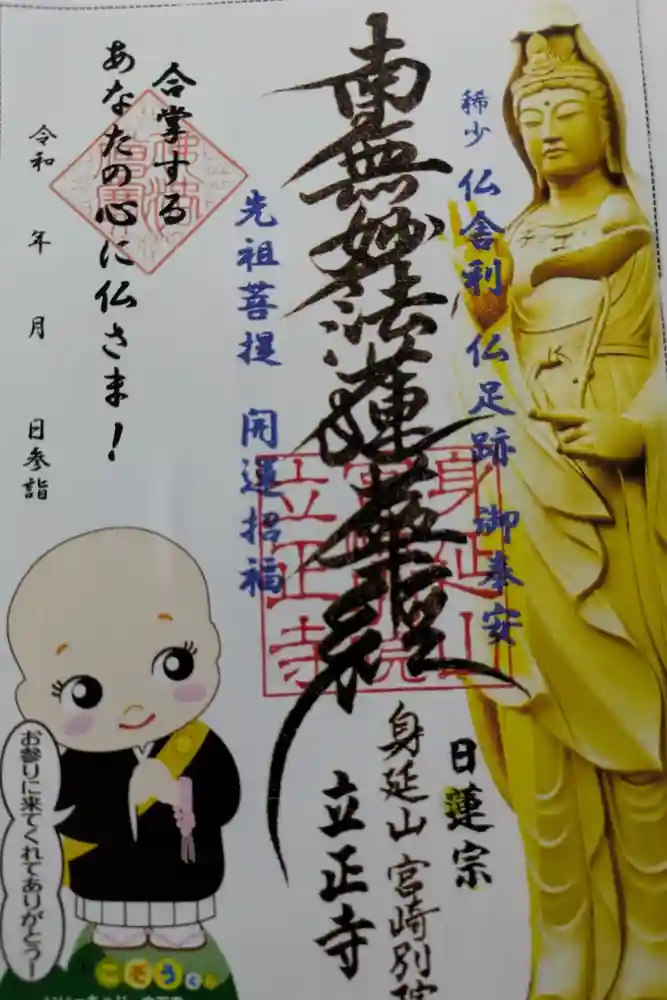 稀少 仏舎利 仏足跡 御奉安
南無妙法蓮華経
先祖菩提 開運招福
合掌する
あなたの心に仏さま!
令和 年 月 日参詣
身延山
立正寺
日蓮宗
身延山 宮崎別院
立正寺
お参りに来てくれてありがとうー
こぞうくん